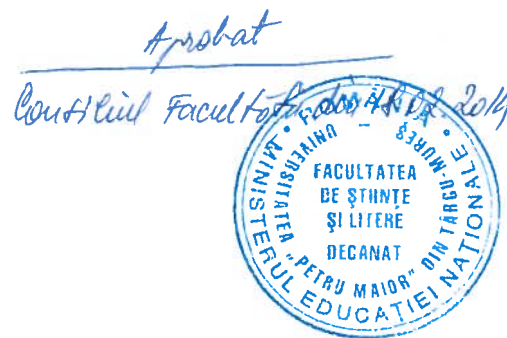 Aprobat
Consiliul Facultății din 18.02.2014
ROMÂNIA
MINISTERUL EDUCAȚIEI NAȚIONALE
UNIVERSITATEA „PETRU MAIOR” DIN TÂRGU-MUREȘ
FACULTATEA
DE ȘTIINȚE
ȘI LITERE
DECANAT